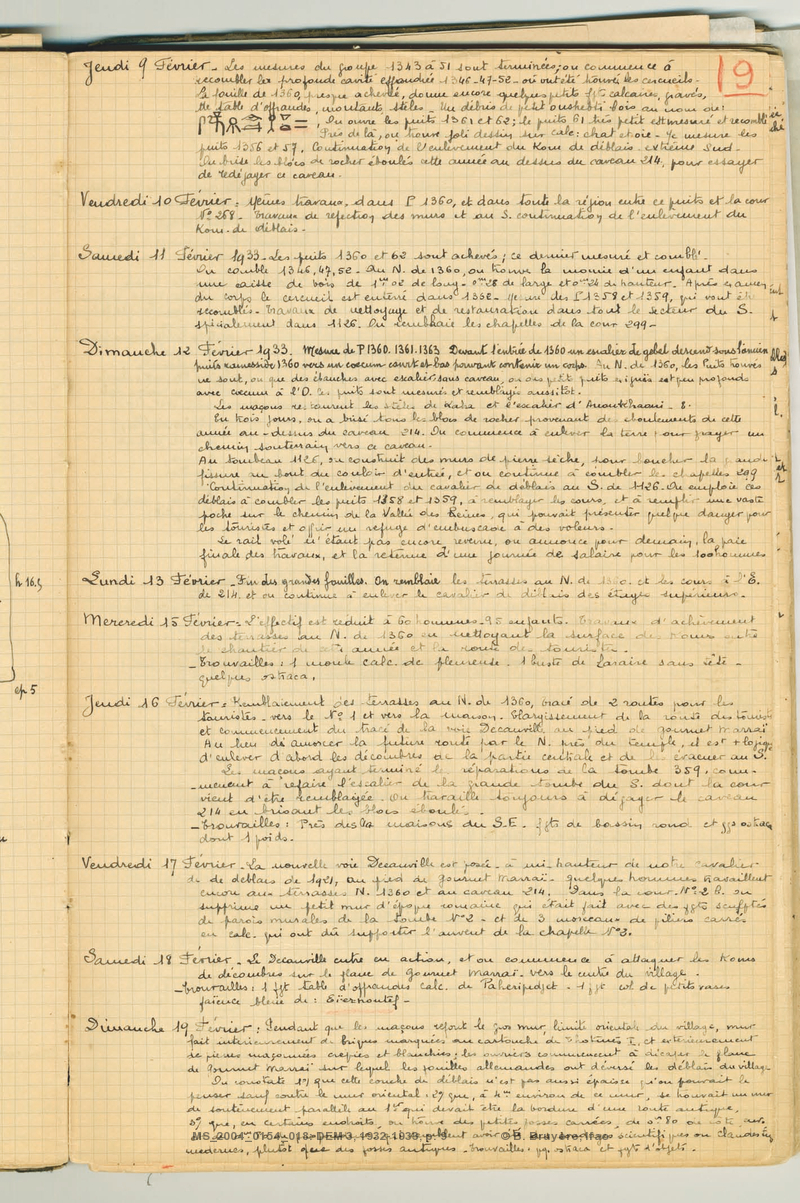 19
Jeudi 9 Février - Les mesures du groupe 1343 à 51 sont terminées; on commence à
recombler la profonde cavité effondrée 1346-47-52 - où ont été trouvés les cercueils.
La fouille de 1360, presque achevée, donne encore quelques petits fgts calcaires, gravés,
de table d'offrandes, montants, stèles. Un débris de petit oushebti bois au nom de:
On ouvre les puits 1361 et 62; le puits 61 très petit est mesuré et recomblé
Près de là, on trouve joli dessin sur calc: chat et oie - Je mesure les
puits 1356 et 57. Continuation de l'enlèvement du Kom de déblais extrême Sud.
On brise les blocs de rocher éboulés cette année au dessus du caveau 214, pour essayer
de dégager ce caveau.
Vendredi 10 Février: Mêmes travaux, dans P 1360, et dans toute la région entre ce puits et la cour
N° 268 - Travaux de réfection des murs et au S. continuation de l'enlèvement du
Kom de déblais.
Samedi 11 Février 1933 - Les puits 1360 et 62 sont achevés; ce dernier mesuré et comblé.
On comble 1346, 47, 52 - Au N. de 1360, on trouve la momie d'un enfant dans
une caisse de bois de 1m02 de long - 0m28 de large et 0m24 de hauteur. Après examen
du corps le cercueil est enterré dans 1362 - des P 1358 et 1359, qui vont être
recomblés - Travaux de nettoyage et de restauration dans tout le secteur du S.
spécialement dans 1126. On remblaie les chapelles de la cour 299 -
Dimanche 12 Février 1933. Mesure de P1360. 1361. 1363 Devant l'entrée de 1360 un escalier de gebel descend sous l'ancien
puits ramesside 1360 vers un caecum court et bas pouvant contenir un corps. Au N. de 1360, les Puits trouvés
ne sont, ou que des ébauches avec escalier sans caveau, ou des petits puits exigus et peu profonds
avec caecum à l'O. Les puits sont mesurés et remblayés aussitôt.
Les maçons restaurent les stèles de Kaha et l'escalier d'Amonkhaoui - 8.
En trois jours, on a brisé tous les blocs de rocher provenant des éboulements de cette
année au-dessus du caveau 214. On commence à enlever la terre pour frayer un
chemin souterrain vers ce caveau.
Au tombeau 1126, on construit des murs de pierre sèche, pour boucher la grande
fissure au bout du couloir d'entrée, et on continue à combler les chapelles 299
Continuation de l'enlèvement du cavalier de déblais au S. de 1126. On emploie ces
déblais à combler les puits 1358 et 1359, à remblayer les cours, et à remplir une vaste
poche sur le chemin de la Vallée des Reines, qui pouvait présenter quelque danger pour
les touristes et offrir un refuge d'embuscade à des voleurs.
Le rail volé n'étant pas encore revenu, on annonce pour demain, la paie
finale des travaux, et la retenue d'une journée de salaire pour les 100 hommes
Lundi 13 Février - Fin des grandes fouilles. On remblaie les terrasses au N. de 1360. et les cours à l'E.
de 214. et on continue à enlever le cavalier de déblais des étages supérieurs.
Mercredi 15 Février - L'effectif est réduit à 60 hommes - 95 enfants. Travaux d'achèvement
des terrasses au N. de 1360 en nettoyant la surface des Koms entre
le chantier de cette année et la route des touristes.
- Trouvailles: 1 moule calc. de pleureuse. 1 buste de Laraire sans tête -
quelques ostraca.
Jeudi 16 Février: Remblaiement des terrasses au N. de 1360, tracé de 2 routes pour les
touristes - vers le N° 1 et vers la maison. Elargissement de la route des touristes
et commencement du tracé de la voie Decauville au pied de Gournet Marraï
Au lieu de amorcer la future route par le N. près du temple, il est + logique
d'enlever d'abord les décombres de la partie centrale et de les évacuer au S.
Les maçons ayant terminé les réparations de la tombe 359, com-
-mencent à refaire l'escalier de la grande tombe du S. dont la cour
vient d'être remblayée. On travaille toujours à dégager le caveau
214 en brisant les blocs éboulés.
- Trouvailles: Près des maisons du S.E. fgts de bassin rond et ostraca
dont 1 poids.
Vendredi 17 Février - La nouvelle voie Decauville est posée - à mi-hauteur de notre cavalier
de déblais de 1921, au pied de Gournet Marraï - quelques hommes travaillent
encore aux terrasses N. 1360 et au caveau 214. Dans la cour N° 2 B. on
supprime un petit mur d'époque romaine qui était fait avec des fgts sculptés
de parois murales de la tombe N° 2 - et de 3 morceaux de piliers carrés
en calc. qui ont dû supporter l'auvent de la chapelle N° 3.
Samedi 18 Février - Le Decauville entre en action, et on commence à attaquer les Koms
de décombres sur le flanc de Gournet Marraï - vers le centre du village.
- Trouvailles: 1 fgt table d'offrandes calc. de Paheripedjet - 1 fgt col de petit vases
faïence bleue de:
Dimanche 19 Février: Pendant que les maçons refont le gros mur, limite orientale du village, mur
fait intérieurement de briques marquées au cartouche de Thotmès I, et extérieurement
de pierres maçonnées crépies et blanchies; les ouvriers commencent à décaper le flanc
de Gournet Marraï sur lequel les fouilles allemandes ont déversé les déblais du village
On constate 1°) que cette couche de déblais n'est pas aussi épaisse qu'on pouvait le
penser sauf contre le mur oriental: 2°) que, à 4m environ de ce mur, se trouvait un mur
de soutènement parallèle au 1er qui devait être la bordure d'une route antique,
3°) que, en certains endroits, on trouve des petites fosses carrées, de 0m80
MS_2004_0154_018_DEM3_1932-1933_p. 9 © B. Bruyère Ifao
modernes, plutôt que des fosses antiques - Trouvailles: qq. ostraca et fgts d'objets.
h 16.5
ep 5